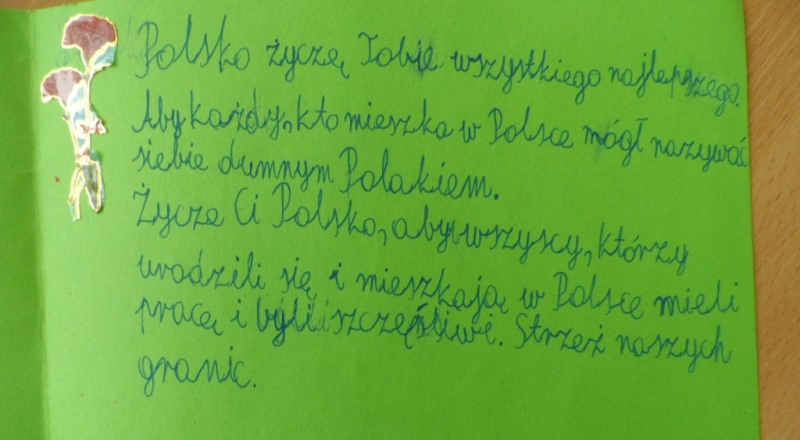 Polsko życzę Tobie wszystkiego najlepszego.
Aby każdy, kto mieszka w Polsce mógł nazywać
siebie dumnym Polakiem.
Życzę Ci Polsko, aby wszyscy, którzy
urodzili się i mieszkają w Polscę mieli
pracę i byli szczęśliwi. Strzeż naszych
granic.